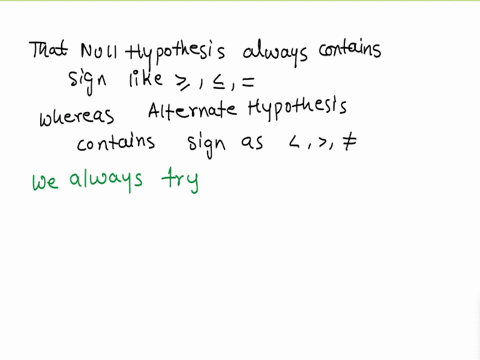 That Null Hypothesis always contains
sign like ≥, ≤, =
whereas Alternate Hypothesis
contains sign as <, >, ≠
we always try